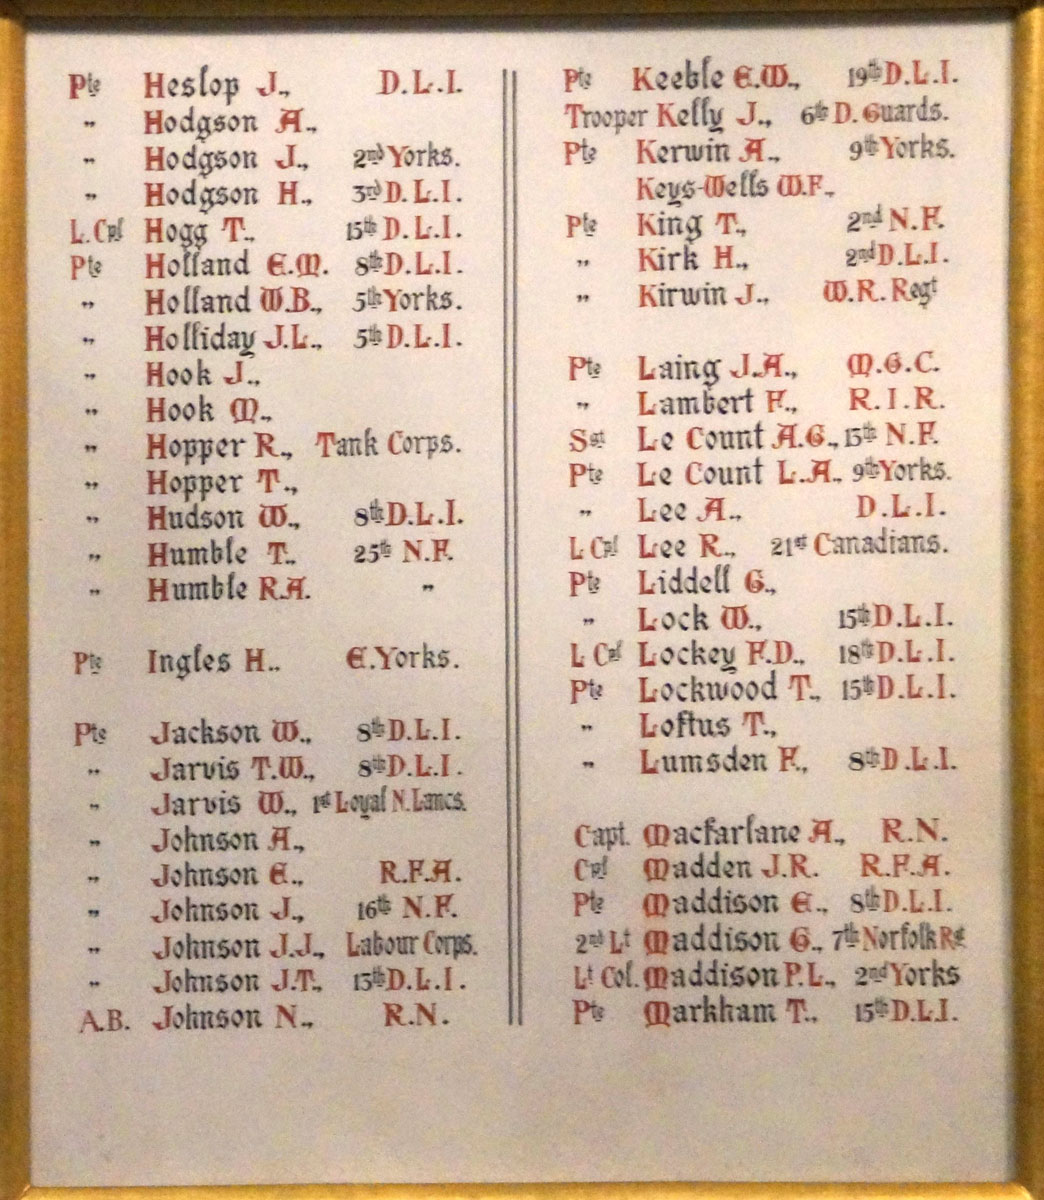 Pte Heslop J., D.L.I.
" Hodgson A.,
" Hodgson J., 2nd Yorks.
" Hodgson H., 3rd D.L.I.
L. Cpl Hogg T., 15th D.L.I.
Pte Holland E.M. 8th D.L.I.
" Holland W.B., 5th Yorks.
" Holliday J.L., 5th D.L.I.
" Hook J.,
" Hook M.,
" Hopper R., Tank Corps.
" Hopper T.,
" Hudson W., 8th D.L.I.
" Humble T., 25th N.F.
" Humble R.A. "
Pte Ingles H., E.Yorks.
Pte Jackson W., 8th D.L.I.
" Jarvis T.W., 8th D.L.I.
" Jarvis W., 1st Loyal N. Lancs.
" Johnson A.,
" Johnson E., R.F.A.
" Johnson J., 16th N.F.
" Johnson J.J., Labour Corps.
" Johnson J.T., 13th D.L.I.
A.B. Johnson N., R.N.
Pte Keeble E.W., 19th D.L.I.
Trooper Kelly J., 6th D. Guards.
Pte Kerwin A., 9th Yorks.
Keys-Wells W.F.,
Pte King T., 2nd N.F.
" Kirk H., 2nd D.L.I.
" Kirwin J., W.R. Regt
Pte Laing J.A., M.G.C.
" Lambert F., R.I.R.
Sgt Le Count A.G., 13th N.F.
Pte Le Count L.A., 9th Yorks.
" Lee A., D.L.I.
L Cpl Lee R., 21st Canadians.
Pte Liddell G.,
" Lock W., 15th D.L.I.
L Cpl Lockey F.D., 18th D.L.I.
Pte Lockwood T., 15th D.L.I.
" Loftus T.,
" Lumsden F., 8th D.L.I.
Capt. Macfarlane A., R.N.
Cpl Madden J.R. R.F.A.
Pte Maddison E., 8th D.L.I.
2nd Lt Maddison G., 7th Norfolk Rgt
Lt Col. Maddison P.L., 2nd Yorks
Pte Markham T., 15th D.L.I.